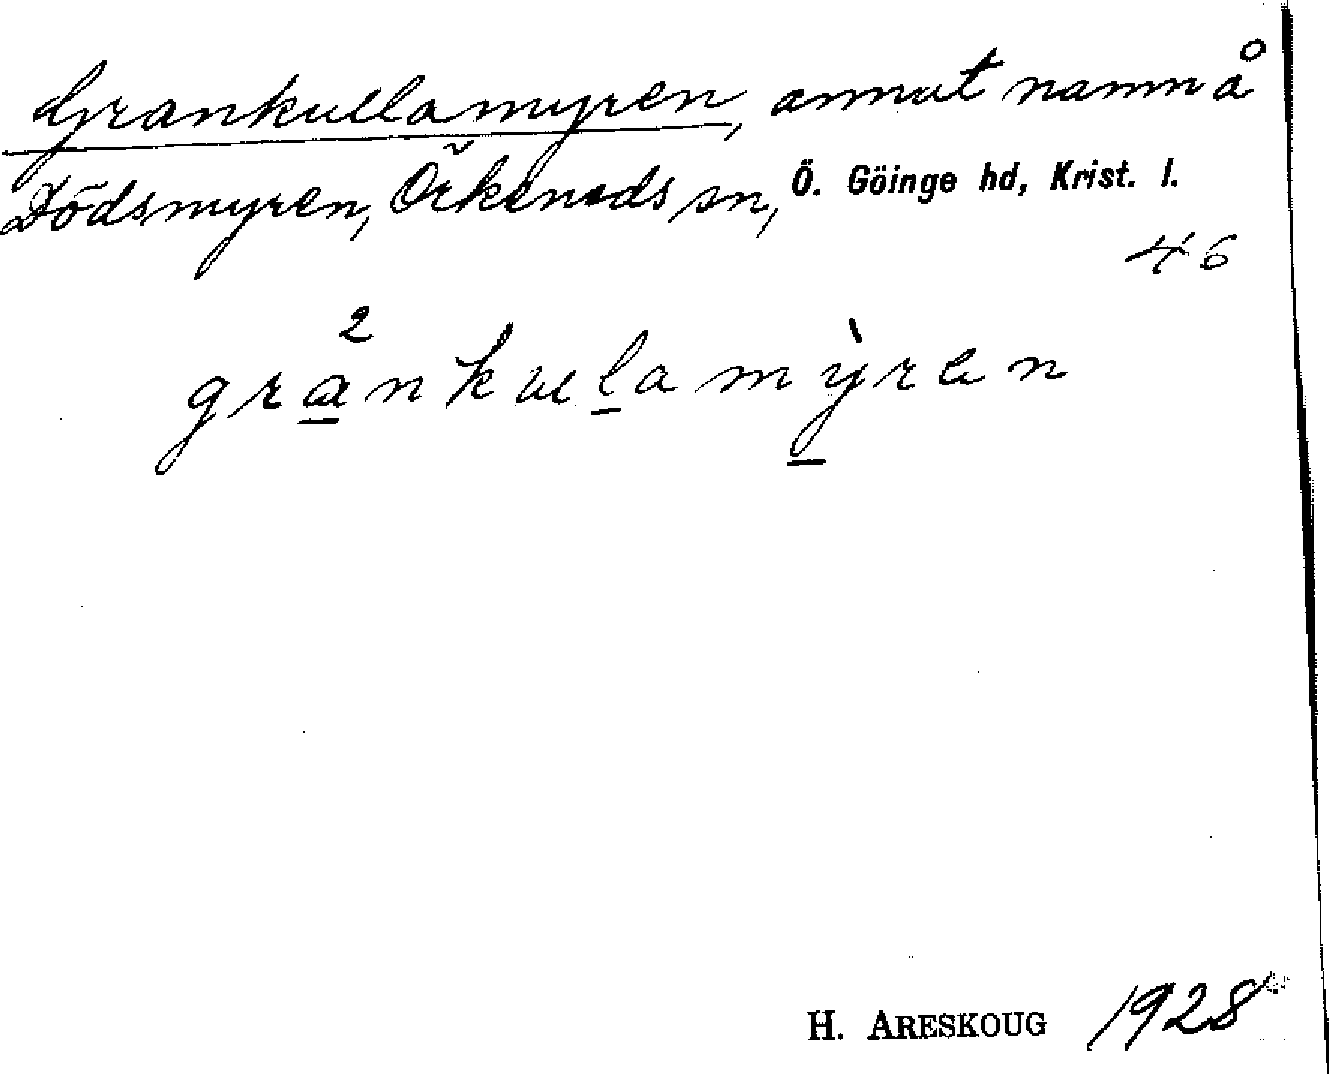 Grankullamyren, annat namn å
Dödsmyren, Örkeneds sn, Ö. Göinge hd, Krist. l.
46
gra²nkulamỳren
H. ARESKOUG 1928